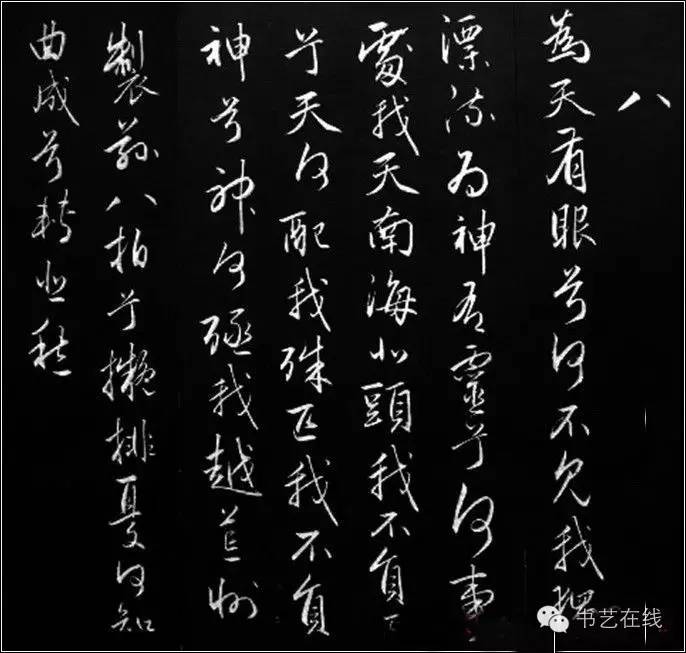 八
為天有眼兮何不見我獨
漂流為神有靈兮何事
處我天南海北頭我不負天
兮天何配我殊匹我不負
神兮神何殛我越荒州
製茲八拍兮擬排憂何知
曲成兮轉悲愁
书艺在线